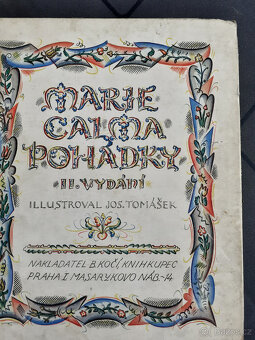 MARIE
CALMA
POHÁDKY
II. VYDÁNÍ
ILLUSTROVAL JOS. TOMÁŠEK
NAKLADATEL B. KOČÍ, KNIHKUPEC
PRAHA I. MASARYKOVO NÁB.-14